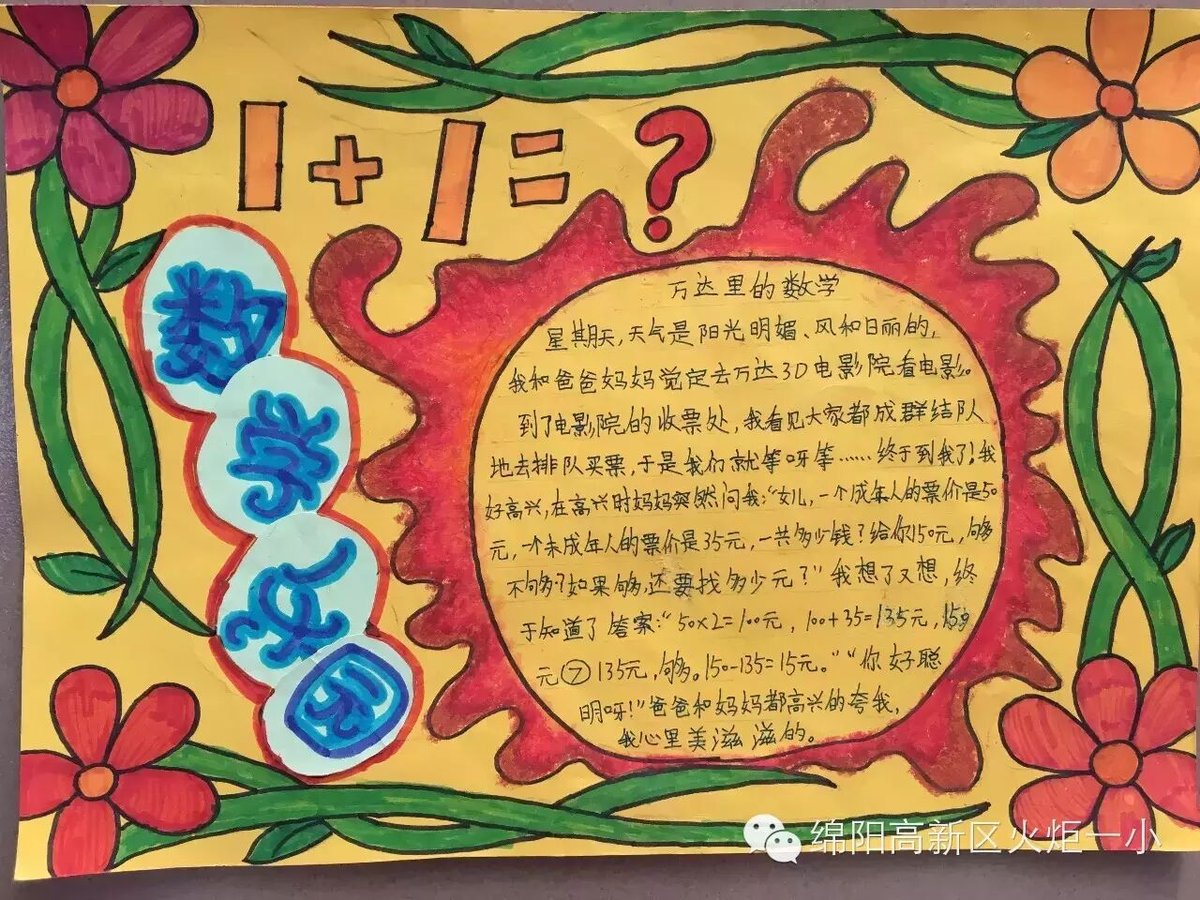 1+1=?
数学乐园
万达里的数学
星期天,天气是阳光明媚、风和日丽的,
我和爸爸妈妈觉定去万达3D电影院看电影。
到了电影院的收票处,我看见大家都成群结队
地去排队买票,于是我们就等呀等……终于到我了!我
好高兴,在高兴时妈妈突然问我:“女儿,一个成年人的票价是50
元,一个未成年人的票价是35元,一共多少钱?给你150元,够
不够?如果够,还要找多少元?”我想了又想,终
于知道了答案:“50×2=100元,100+35=135元,150
元>135元,够。150-135=15元。”“你好聪
明呀!”爸爸和妈妈都高兴的夸我,
我心里美滋滋的。
绵阳高新区火炬一小